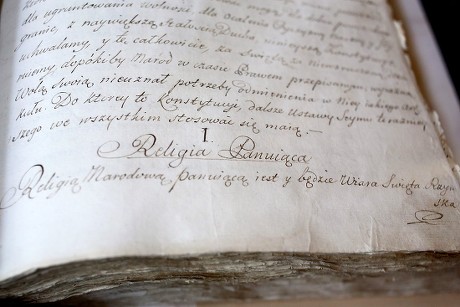 dla ugruntowania wolności, dla ocalenia
granic, z największą stałością Ducha ninieyszą Konstytucyę
uchwalamy, y tę całkowicie za świętą, za niewzruszoną
niemy dopókiby Naród w czasie Prawem przepisanym, wyraźną
Wolą Swoią nieuznał potrzeby odmienienia w Niey iakiego Art:
kułu. Do ktorey to Konstytucyi dalsze Ustawy Seymu teraźniey
szego we wszystkim stosować się maią. —
I.
Religia Panuiąca
Religią Narodową panuiącą iest y będzie Wiara Swięta Rzym
ska